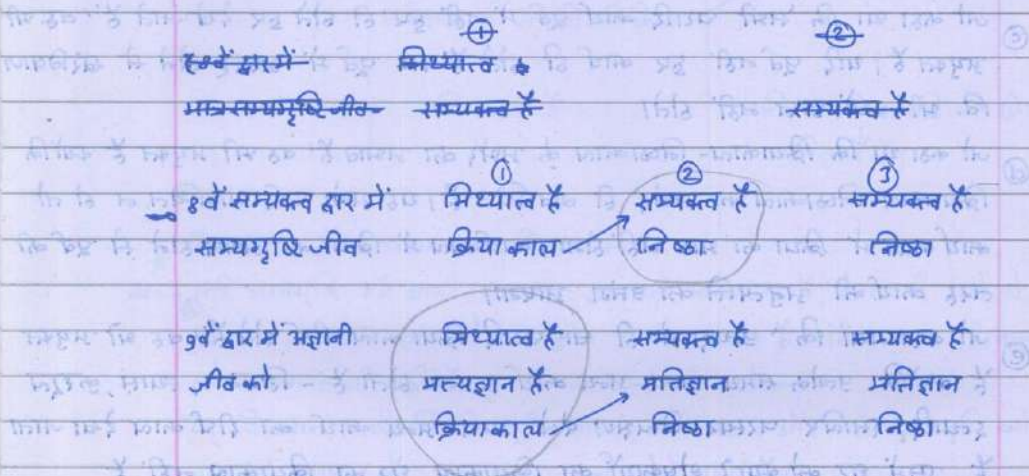 ① ②
८वें द्वार में मिथ्यात्व
मात्र सम्यग्दृष्टि जीव सम्यक्त्व है सम्यक्त्व है
① ② ③
8वें सम्यक्त्व द्वार में मिथ्यात्व है सम्यक्त्व है सम्यक्त्व है
सम्यग्दृष्टि जीव क्रियाकाल निष्ठा निष्ठा
9वें द्वार में अज्ञानी मिथ्यात्व है सम्यक्त्व है सम्यक्त्व है
जीव को मत्यज्ञान है मतिज्ञान मतिज्ञान
क्रियाकाल निष्ठा निष्ठा